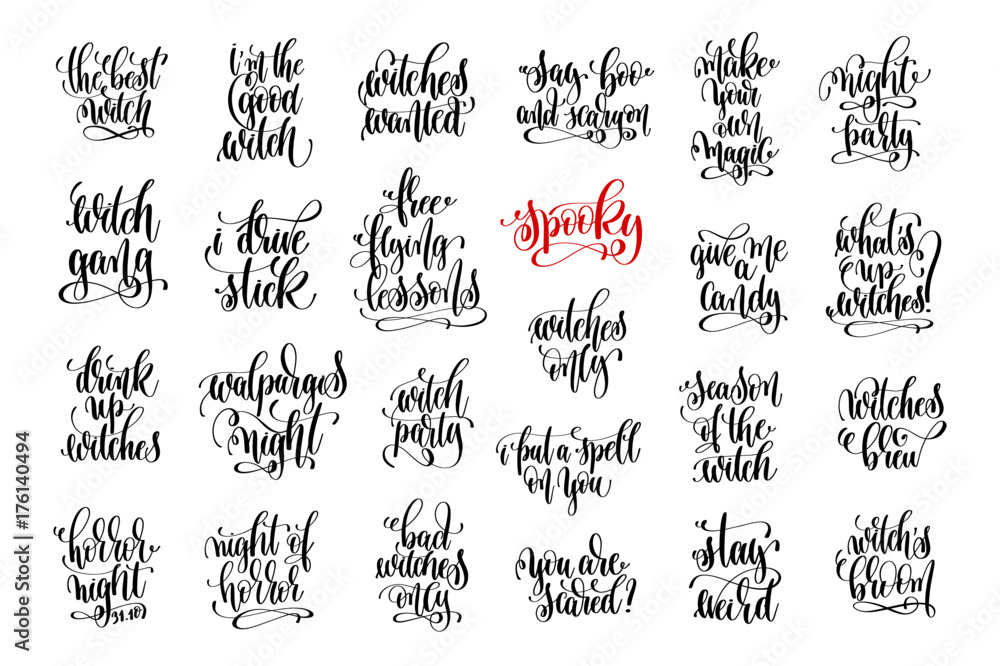 the best
witch
i'm the
good
witch
witches
wanted
say boo
and scary on
make
your
own
magic
night
party
witch
gang
i drive
stick
free
flying
lessons
spooky
give me
a
candy
what's
up
witches?
witches
only
drink
up
witches
walpurgis
night
witch
party
i put a spell
on you
season
of the
witch
witches
brew
horror
night
31.10
night of
horror
bad
witches
only
you are
scared?
stay
weird
witch's
broom
Adobe Stock | #176140494